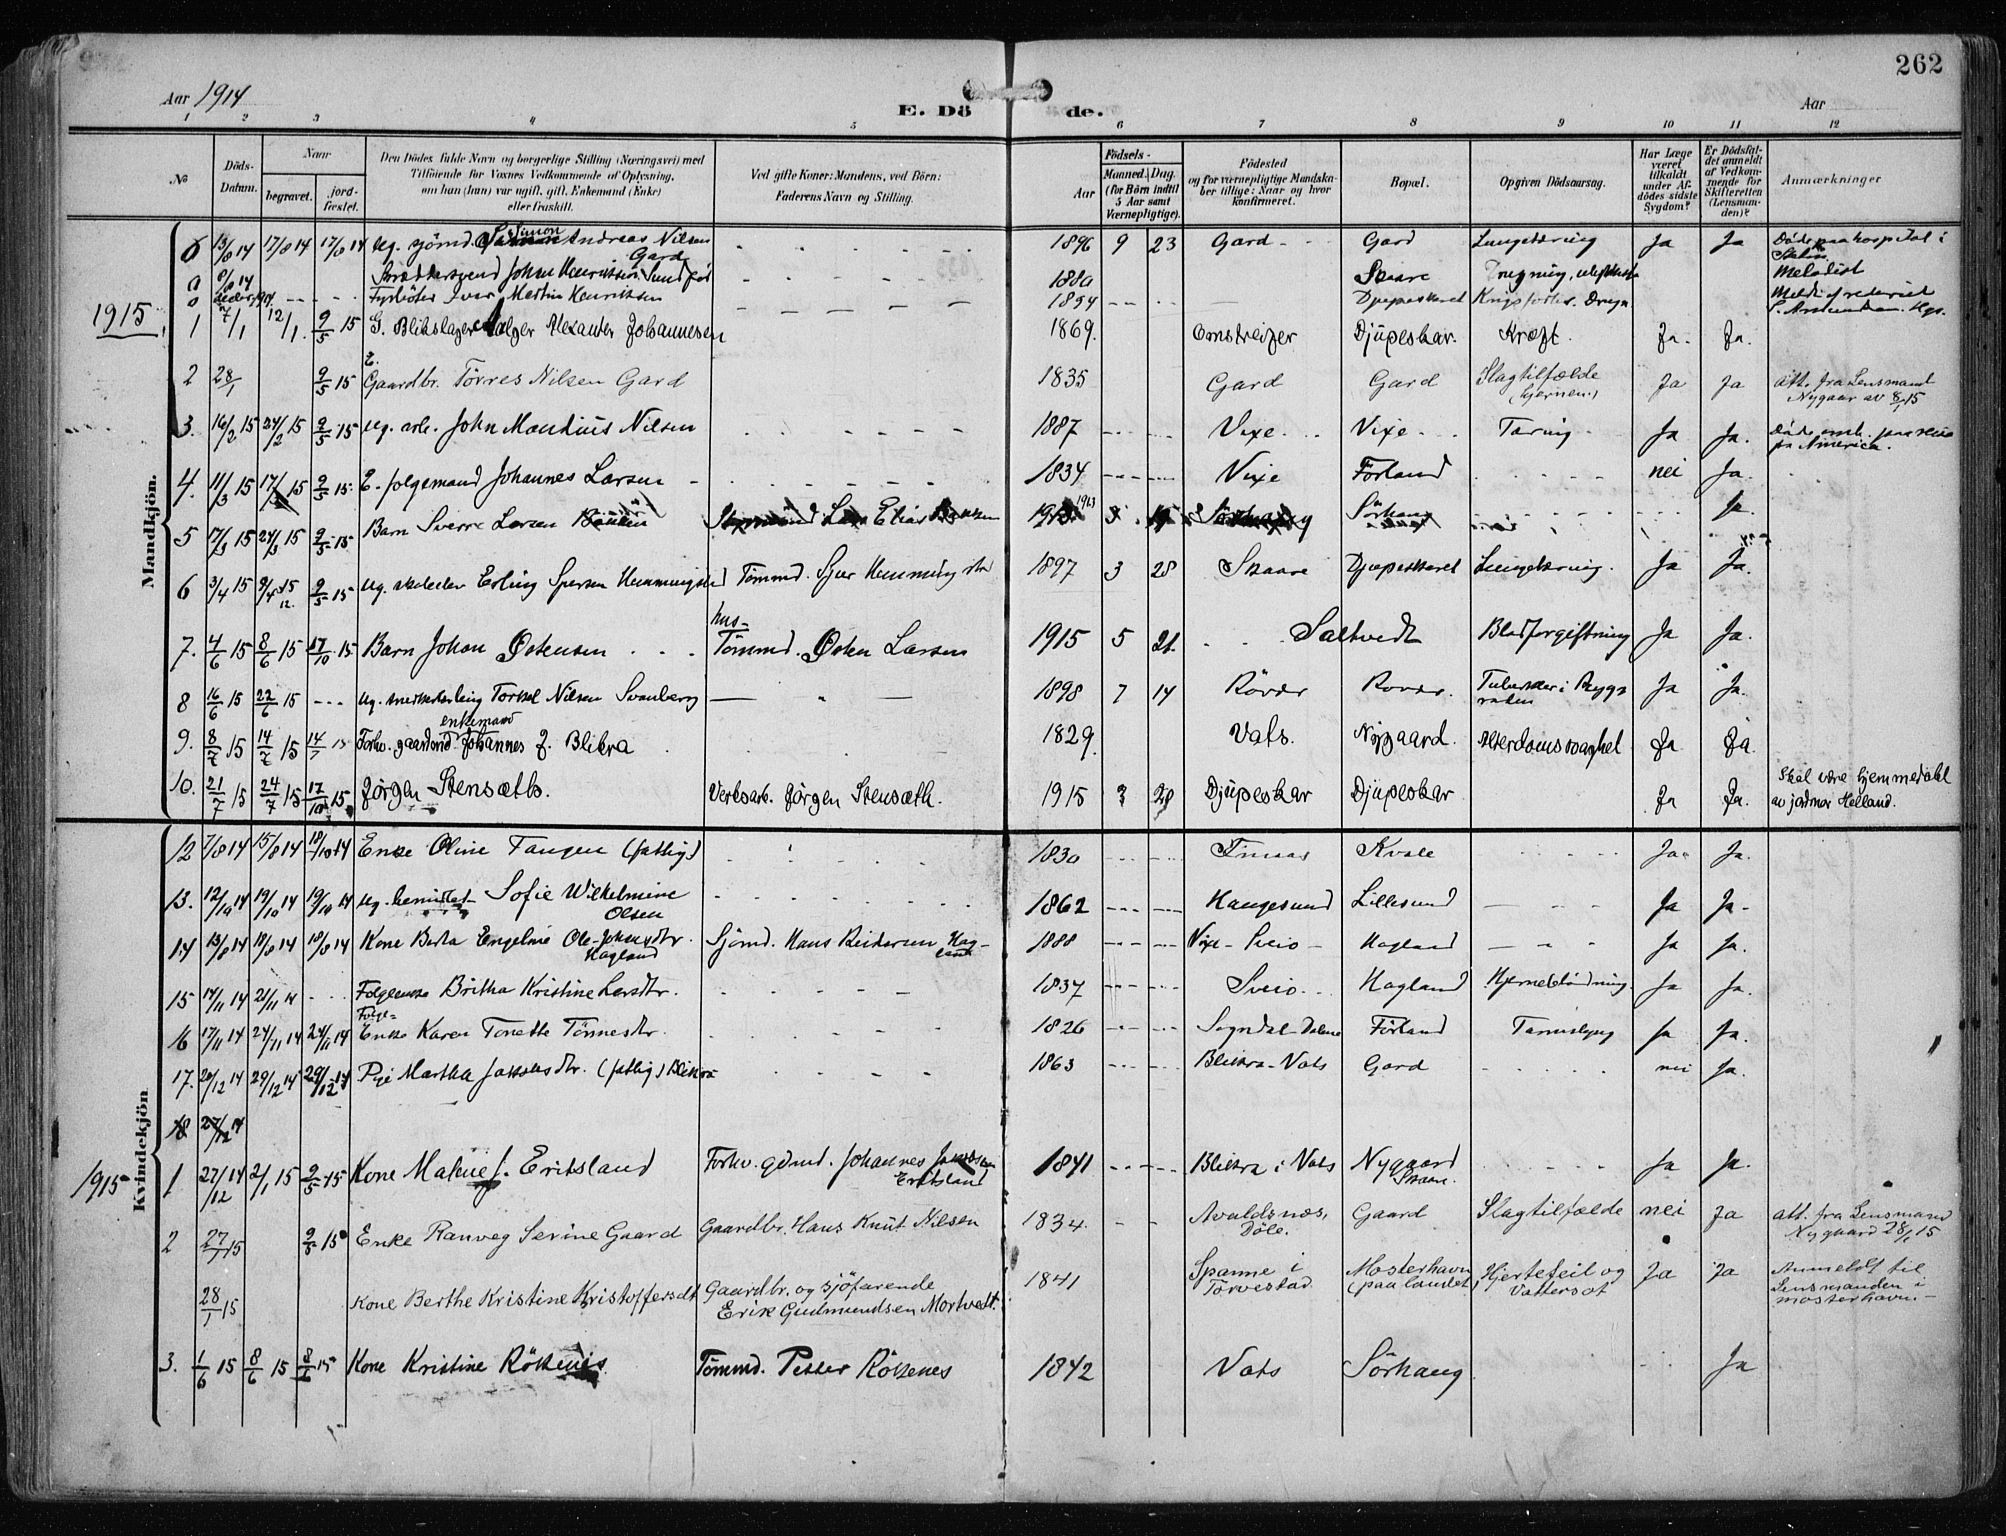 262
Aar 1914
E. Dö de.
Aar
1 2 3 4 5 6 7 8 9 10 11 12
No
Döds-Datum.
Naar
begravet.
jord-fæstet.
Den Dödes fulde Navn og borgerlige Stilling (Næringsvei) med
Tilföiende for Voxnes Vedkommende af Oplysning,
om han (hun) var ugift, gift, Enkemand (Enke)
eller fraskilt.
Ved gifte Koner: Mandens, ved Börn:
Faderens Navn og Stilling.
Födsels-
Aar
Maaned. Dag.
(for Börn indtil
5 Aar samt
Værnepligtige).
Födested
og for værnepligtige Mandska-
ber tillige: Naar og hvor
konfirmeret.
Bopæl.
Opgiven Dödsaarsag.
Har Læge
været
tilkaldt
under Af-
dödes sidste
Sygdom?
Er Dödsfal-
det anmeldt
af Vedkom-
mende for
Skifteretten
(Lensman-
den)?
Anmærkninger
Mandkjön.
6 13/8 14 17/8 14 17/8 14 ug. sjömd. Simon Andreas Nilsen Gard 1896 9 23 Gard Gard Lungetæring Ja Ja Döde paa hospital i
0 8/8 14 Johan Henriksen Sundför 1880 Skaare Metodist
0 Fyrböter Ivar Martin Henriksen 1854 Djupeskaret
1915
1 7/1 12/1 9/5 15 G. Blikslager Holger Alexander Johannesen 1869. Omstreifer Djupeskar. Kræft. Ja. Ja.
2 28/1 9/5 15 E. Gaardbr. Törres Nilsen Gard 1835 Gard Gard Slagtilfælde (hjernen.) Ja Ja att. fra Lensmand Nygaar av 8/1 15
3. 16/2 15 24/2 15 9/5 15 ug. arb. John Mandius Nilsen 1887 Vixe Vixe Tæring Ja Ja. Döde omb. paa reise fra America.
4. 11/3 15 17/3 15 9/5 15. E. folgemand Johannes Larsen 1834 Vixe Förland nei Ja.
5 17/3 15 24/3 15 9/5 15 Barn Sverre Larsen Elias 1913 Sörhaug Ja.
6 3/4 15 9/4 15 9/5 15 ug. Erling Sjursen Hemmingstad Tömmd. Sjur Hemmingstad 1897 3 28 Skaare Djupeskaret Lungetæring. Ja Ja.
7. 4/6 15 8/6 15 17/10 15. Barn Johan Östensen hus-Tömmd. Östen Larsen 1915 5 21. Saltvedt Blodforgiftning Ja Ja.
8 16/6 15 22/6 15 ug. Torkel Nilsen Svanberg 1898 7 14 Rövær Rovær. Tuberkler i Rygraden Ja Ja.
9. 8/7 15 14/7 15 14/7 15 Forhv. gaardmd. enkemand Johannes J. Blikra 1829. Vats. Nygaard. Alderdomssvaghet Ja Ja.
10. 21/7 15 24/7 15 17/10 15 Jørgen Stensæth. Verksarb. Jørgen Stensæth. 1915 3 28 Djupeskar Djupeskar Ja Ja. Skal være hjemmedöbt av jordmor Helland.
Kvindekjön
12 7/8 14 15/8 14 18/10 14 Enke Oline Tangen (fattig) 1830 Kvale Ja Ja.
13. 12/10 14 19/10 14 19/10 14 ug. Sofie Wilhelmine Olsen 1862 Haugesund Lillesund Ja Ja
14 13/8 14 18/8 14 18/8 14 Kone Berta Engeline Ole-Johnsdtr. Hagland Sjömd. Hans Reidersen Hagland 1888 Vixe - Sveio Hagland Ja Ja.
15 14/11 14 21/11 14 Folgeenke Britha Kristine Larsdtr. 1837 Sveio Hagland Hjerneblödning Ja Ja.
16 17/11 14 24/11 14 24/11 14 Folge-Enke Karen Tonette Tönnesdtr. 1826 Sogndal-Dalene Förland Ja Ja.
17. 20/12 14 29/12 14 29/12 14 Pige Martha Jakobsdtr. (fattig) Blikra 1863 Blikra-Vats Gard nei Ja.
18 27/12 14
1915
1 27/12 14 2/1 15 9/5 15 Kone Malene J. Eritsland Forhv. gdmd. Johannes Jakobsen Eritsland 1841 Blikra i Vats Nygaard Skaare. Ja Ja.
2 27/1 15 9/5 15 Enke Ranveg Serine Gaard Gaardbr. Hans Knut Nilsen 1834. Avaldsnes, Döle. Gaard Slagtilfælde nei Ja att. fra Lensmand Nygaard 28/1 15
28/1 15 Kone Berthe Kristine Kristoffersdt Gaardbr. og sjöfarende Erik Gudmundsen Mortvedt. 1841 Spanne i Torvestad Mosterhavn (paa landet) Hjertefeil og Vattersot Ja Ja Anmeldt til Lensmanden i mosterhavn
3. 1/6 15 8/6 15 8/6 15 Kone Kristine Rökenes Tömmd. Petter Rökenes 1842 Vats Sörhaug Ja